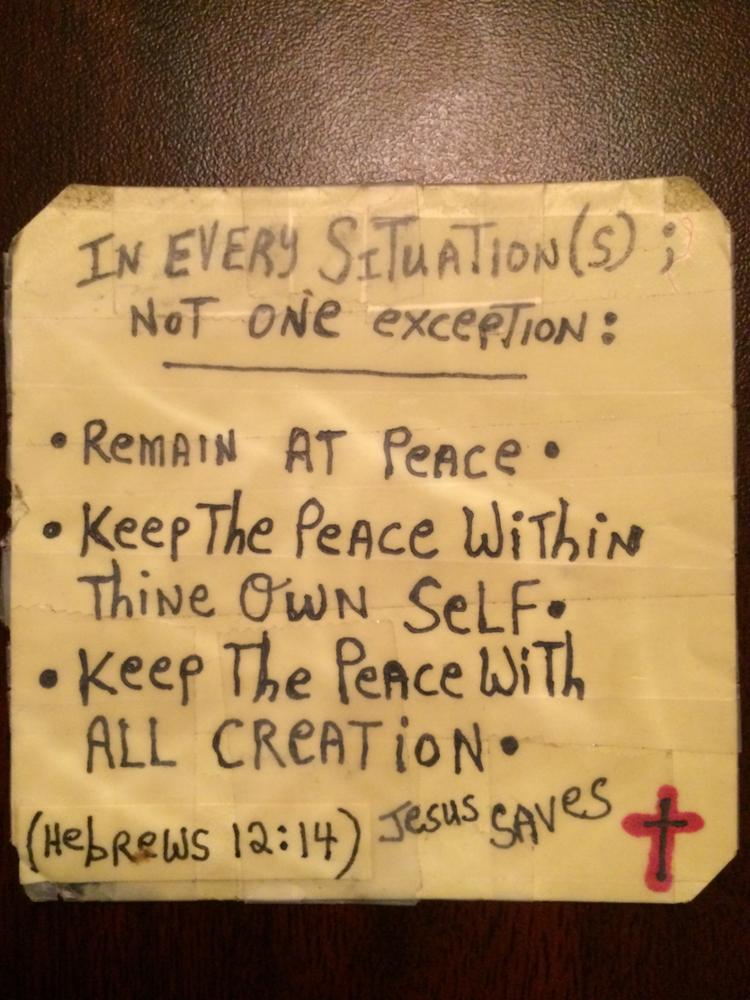 IN EVERY SITUATION(S) ;
NOT ONe exCePTION:
• ReMAIN AT PeACe •
• KeepThe PeACe WiThiN
ThiNe OWN SeLF•
• Keep The PeACe WiTh
ALL CReATiON•
(HebReWS 12:14) Jesus SAVeS